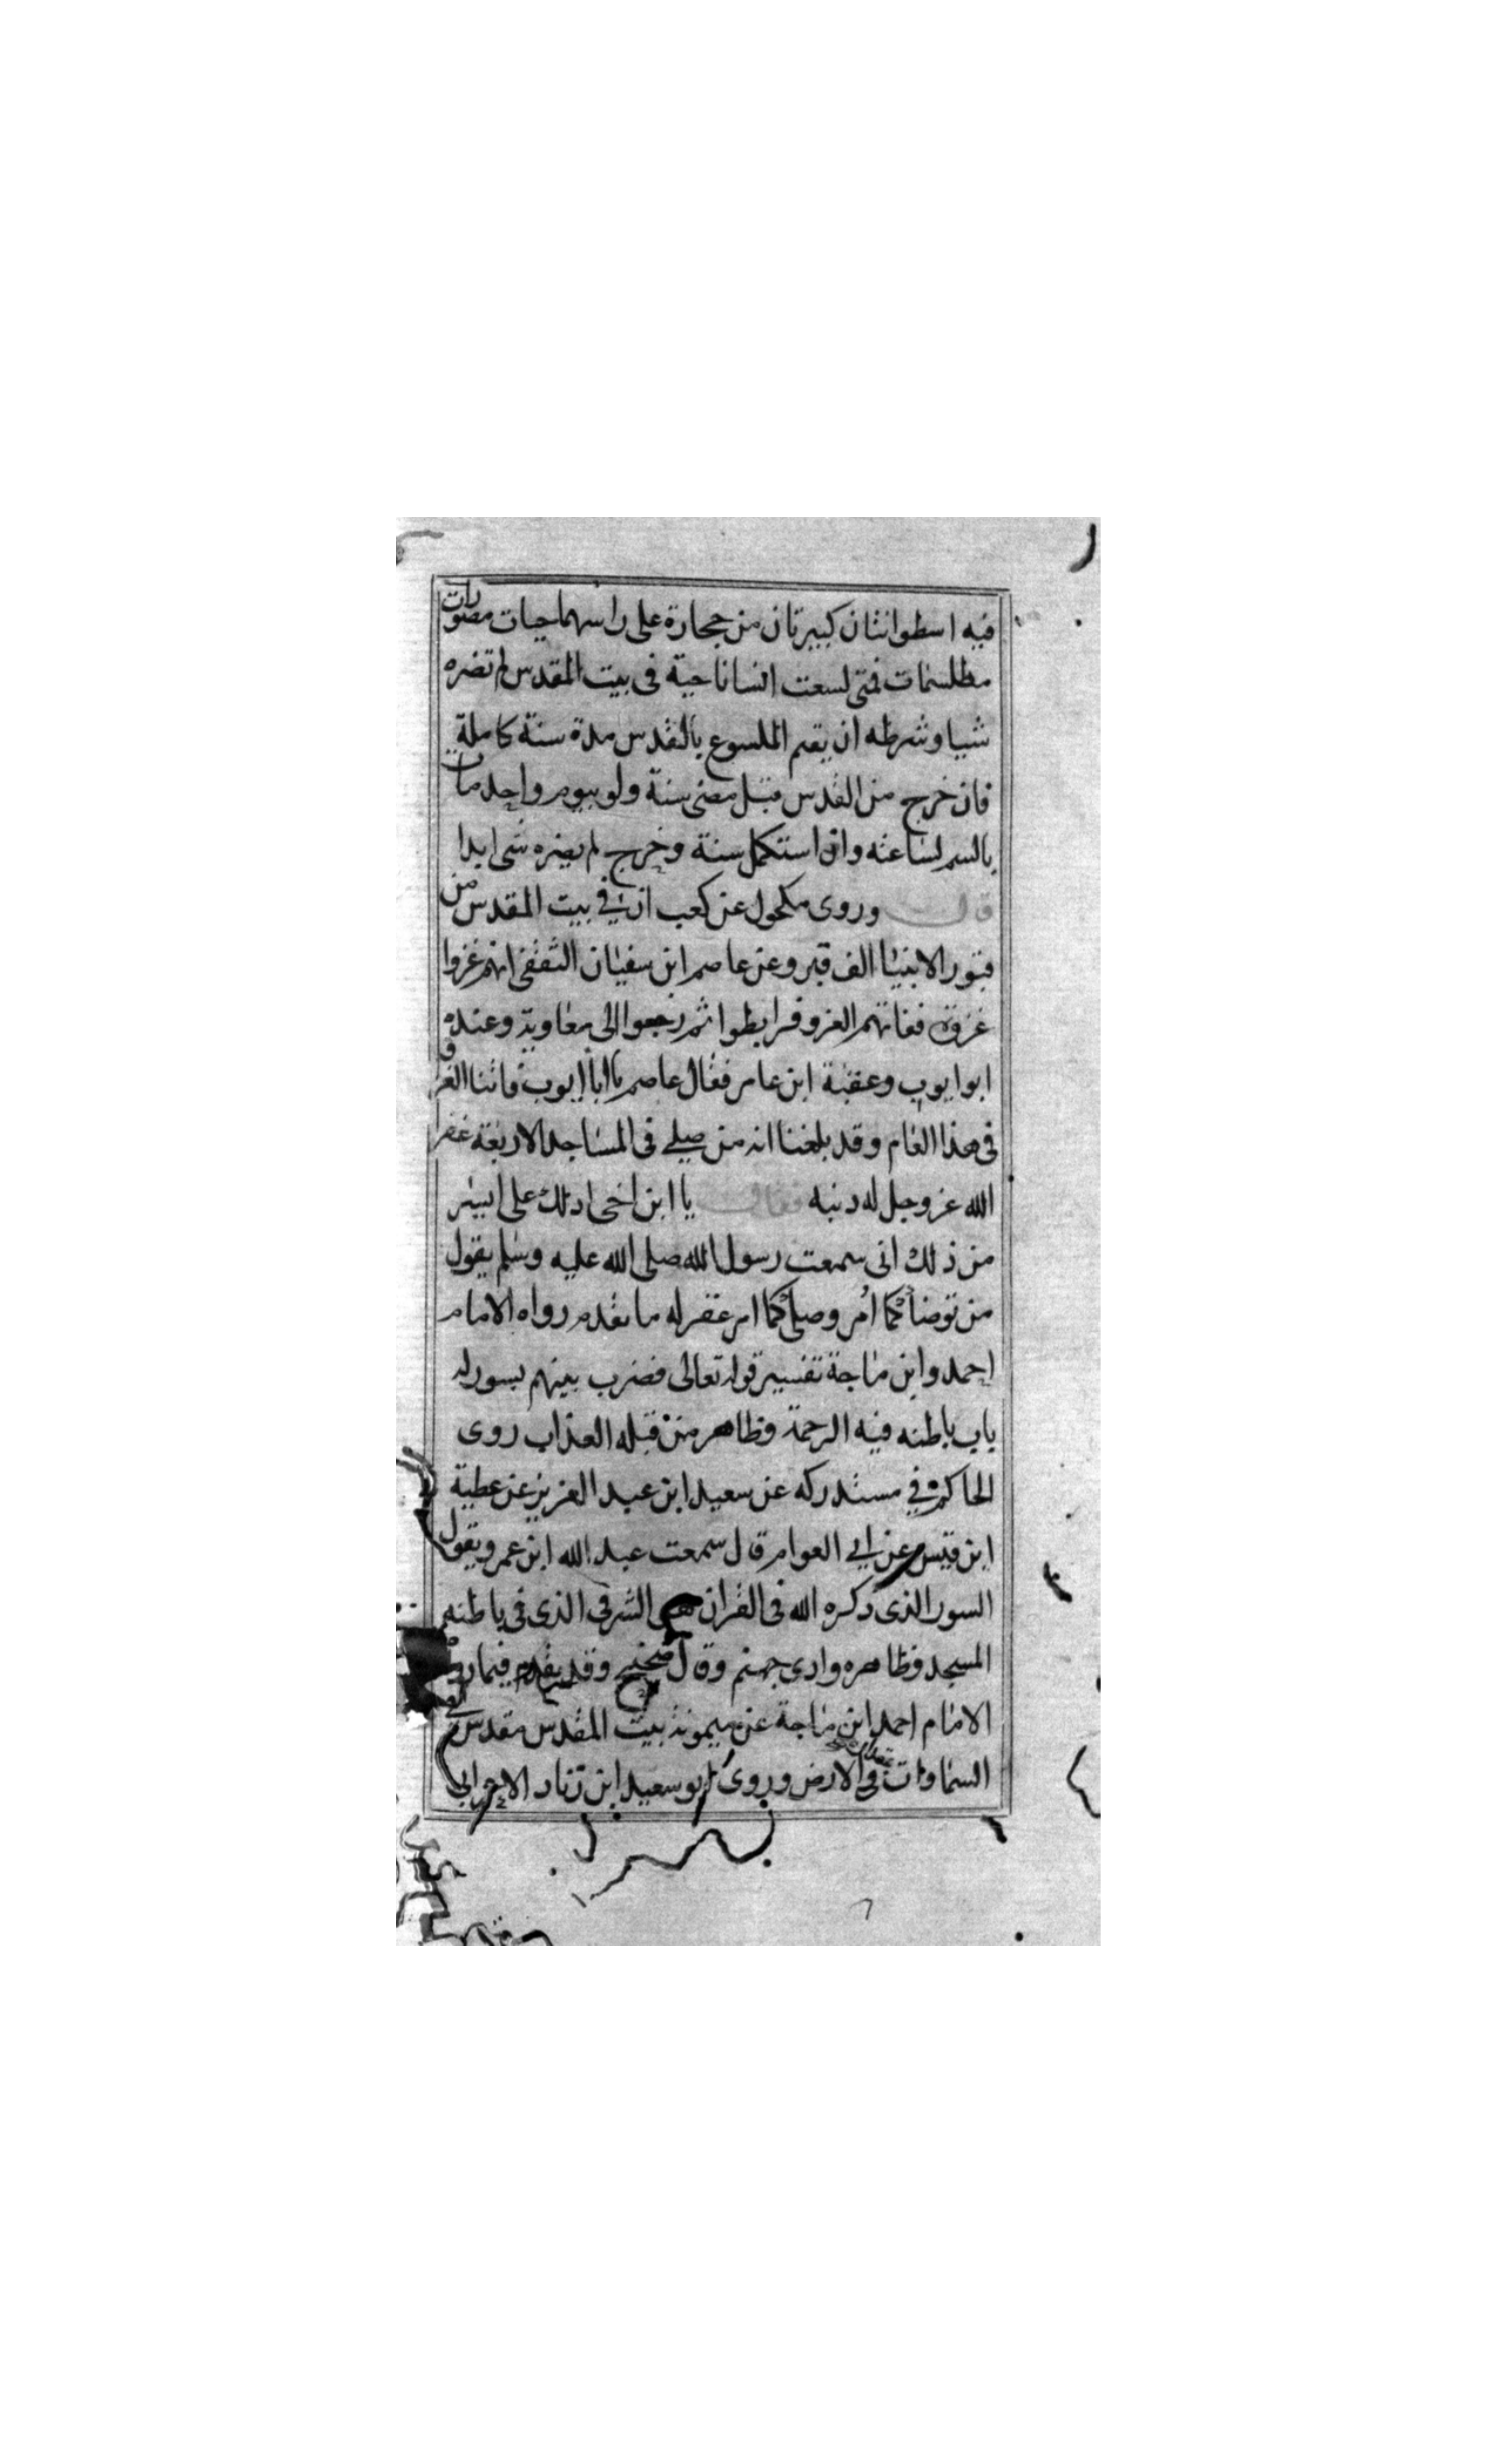 فيه اسطوانتان كبيرتان من حجارة على راسهما حيات مصورات
مطلسمات فمتى لسعت انسانا حية فى بيت المقدس لم تضره
شيا وشرطه ان يقيم الملسوع بالقدس مدة سنة كاملة
فان خرج من القدس قبل مضى سنة ولو بيوم واحد مات
بالسم لساعته وان استكمل سنة وخرج لم يضره شى ابدا
قال وروى مكحول عن كعب ان في بيت المقدس من
قبور الانبيا الف قبر وعن عاصم ابن سفيان الثقفى انهم غزوا
غزوة ففاتهم الغزو فرابطوا ثم رجعوا الى معاوية وعنده
ابو ايوب وعقبة ابن عامر فقال عاصم يا ابا ايوب فاتنا الغزو
فى هذا العام وقد بلغنا انه من صلى فى المساجد الاربعة غفر
الله عز وجل له دنبه فقال يا ابن اخى ادلك على ايسر
من ذلك انى سمعت رسول الله صلى الله عليه وسلم يقول
من توضأ كما أمر وصلى كما امر غفر له ما تقدم رواه الامام
احمد وابن ماجة تفسير قوله تعالى فضرب بينهم بسور له
باب باطنه فيه الرحمة وظاهر من قبله العذاب روى
الحاكم في مستدركه عن سعيد ابن عبد العزيز عن عطية
ابن قيس عن ابي العوام قال سمعت عبد الله ابن عمر ويقول
السور الذى ذكره الله فى القران هى الشرقي الذى فى باطنه
المسجد وظاهره وادى جهنم وقال صحيح وقد تقدم فيما روى
الامام احمد ابن ماجة عن ميمونة بيت المقدس مقدس في
السماوات فى الارض وروى ابو سعيد ابن زناد الاعرابي